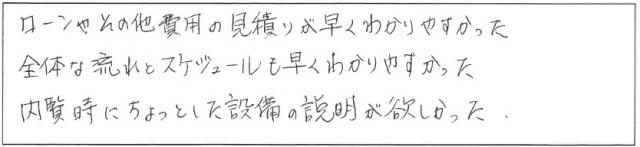 ローンやその他費用の見積りが早くわかりやすかった
全体な流れとスケジュールも早くわかりやすかった
内覧時にちょっとした設備の説明が欲しかった.